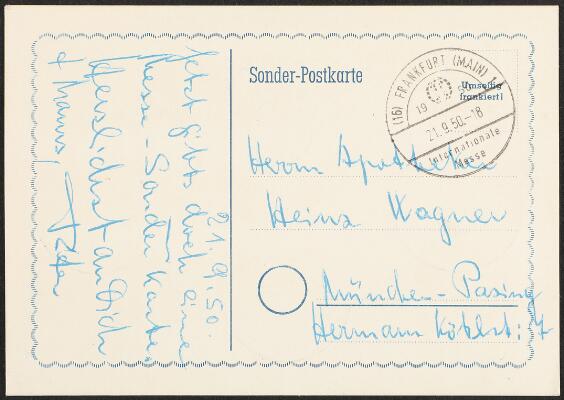 21.9.50.
Jetzt gibts doch eine
Messe-Sonder Karte.
Herzlichst an Dich
+ Mamus,
Peter
Sonder-Postkarte
(16) FRANKFURT (MAIN) 1
19 50
21.9.50.-18
Internationale
Messe
Umseitig
frankiert!
Herrn Apotheker
Heinz Wagner
München-Pasing
Hermann Köhlst: 7